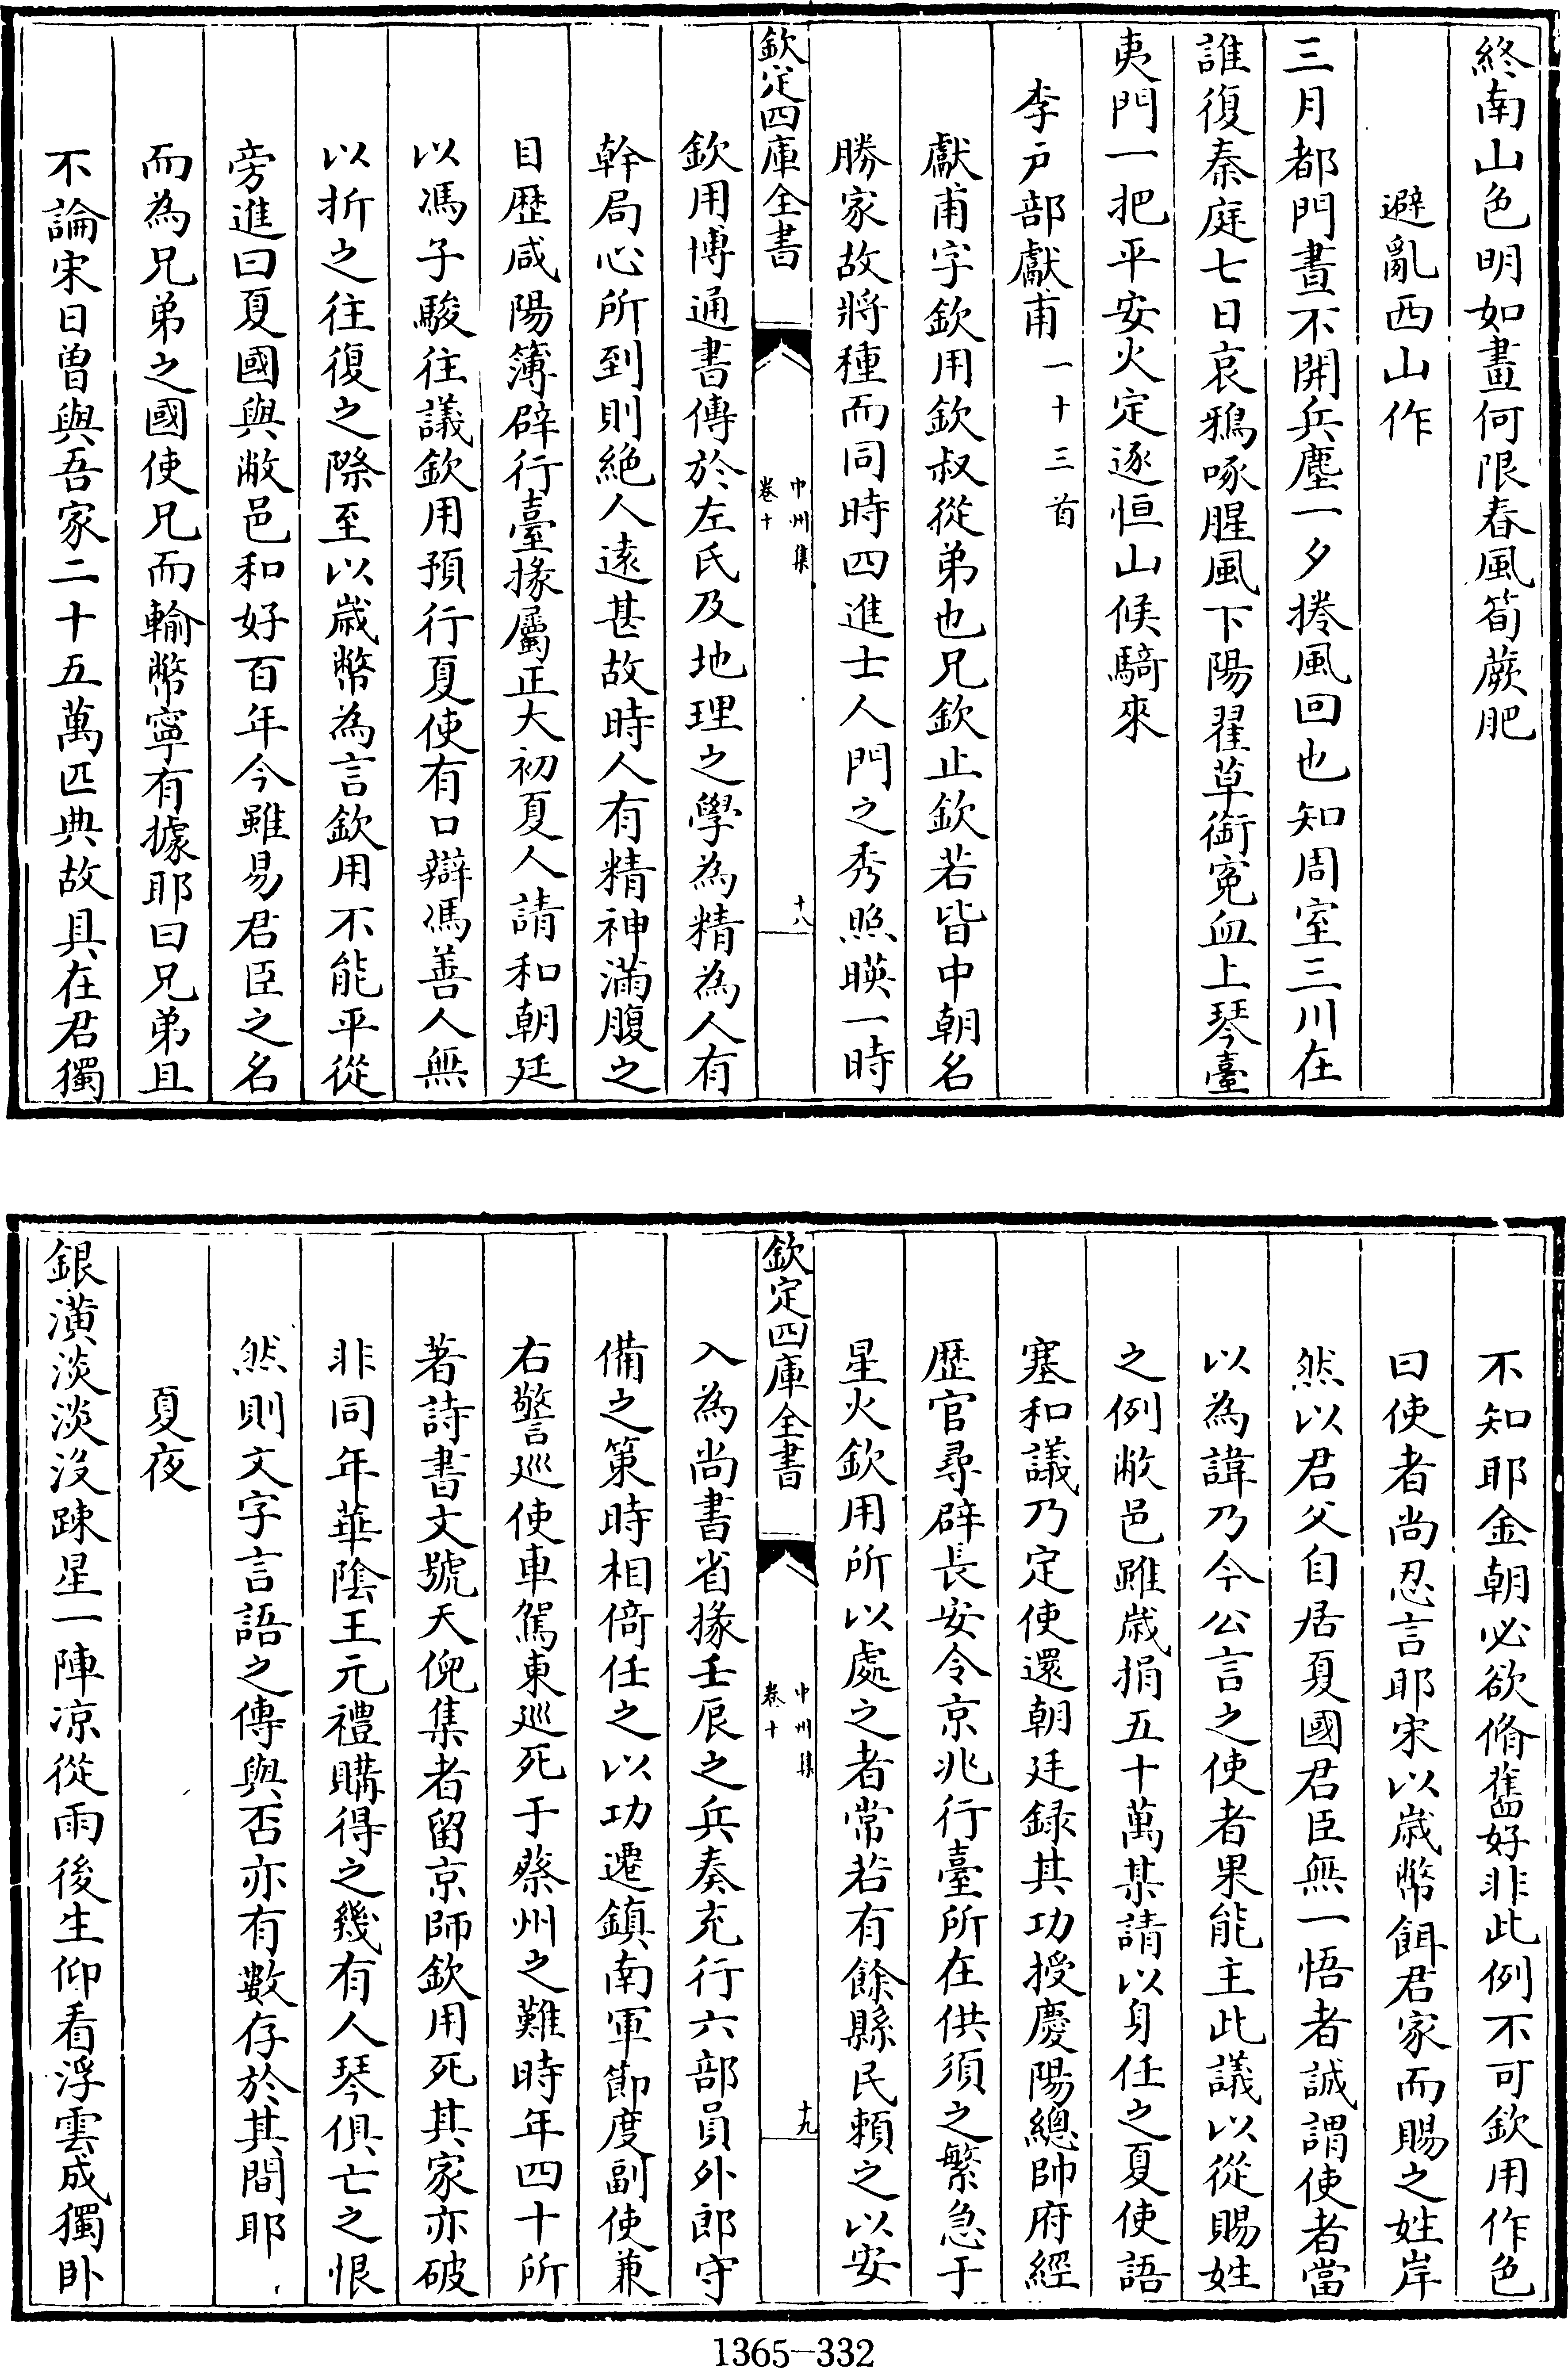 終南山色明如畫何限春風筍蕨肥
避亂西山作
三月都門晝不開兵塵一夕捲風回也知周室三川在
誰復秦庭七日哀鴉啄腥風下陽翟草銜寃血上琴臺
夷門一把平安火定逐恒山候騎來
李户部獻甫一十三首
獻甫字欽用欽叔從弟也兄欽止欽若皆中朝名
勝家故將種而同時四進士人門之秀照暎一時
欽定四庫全書
中州集
卷十
十八
欽用博通書傳於左氏及地理之學為精為人有
幹局心所到則絶人逺甚故時人有精神滿腹之
目歴咸陽簿辟行臺掾屬正大初夏人請和朝廷
以馮子駿往議欽用預行夏使有口辯馮善人無
以折之往復之際至以歳幣為言欽用不能平從
旁進曰夏國與敝邑和好百年今雖易君臣之名
而為兄弟之國使兄而輸幣寧有據耶曰兄弟且
不論宋日曽與吾家二十五萬匹典故具在君獨
不知耶金朝必欲脩舊好非此例不可欽用作色
曰使者尚忍言耶宋以歳幣餌君家而賜之姓岸
然以君父自居夏國君臣無一悟者誠謂使者當
以為諱乃今公言之使者果能主此議以從賜姓
之例敝邑雖歳捐五十萬某請以身任之夏使語
塞和議乃定使還朝廷録其功授慶陽總帥府經
歴官尋辟長安令京兆行臺所在供須之繁急于
星火欽用所以處之者常若有餘縣民頼之以安
欽定四庫全書
中州集
卷十
十九
入為尚書省掾壬辰之兵奏充行六部員外郎守
備之策時相倚任之以功遷鎮南軍節度副使兼
右警廵使車駕東廵死于蔡州之難時年四十所
著詩書文號天倪集者留京師欽用死其家亦破
非同年華隂王元禮購得之幾有人琴俱亡之恨
然則文字言語之傳與否亦有數存於其間耶
夏夜
銀潢淡淡没踈星一陣凉從雨後生仰看浮雲成獨卧
1365-332